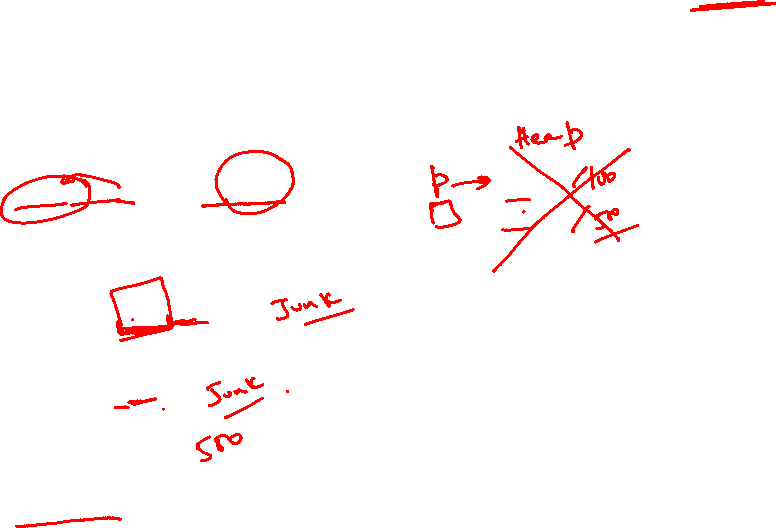 Heap
p
100
500
Junk
Junk.
500